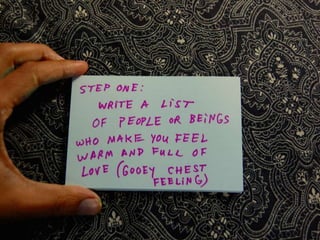 STEP ONE:
WRITE A LIST
OF PEOPLE OR BEINGS
WHO MAKE YOU FEEL
WARM AND FULL OF
LOVE (GOOEY CHEST
FEELING)